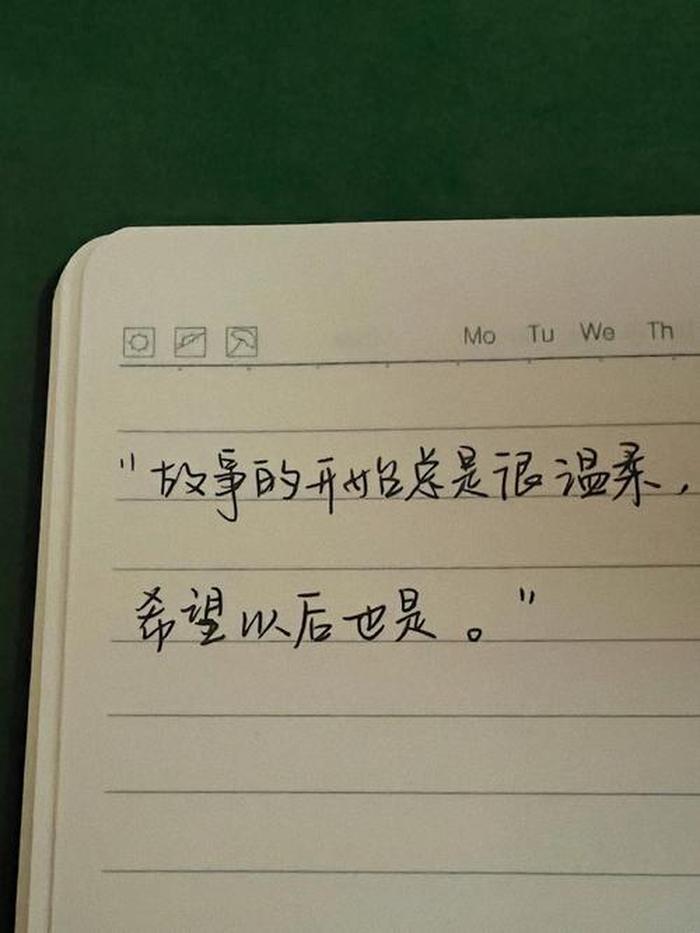 Mo Tu We Th
"故事的开始总是很温柔,
希望以后也是。"